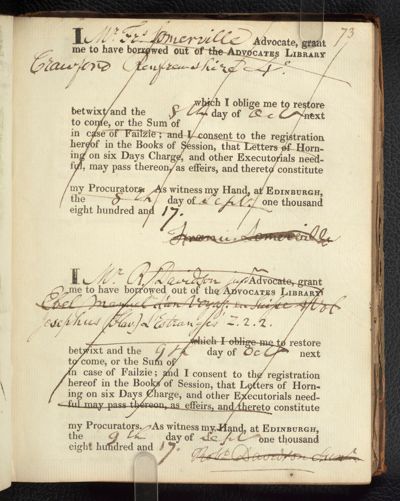 73
I Mr Frs Somerville Advocate, grant
me to have borrowed out of the ADVOCATES LIBRARY
Crawford Renfrewshire 4o.
which I oblige me to restore
betwixt and the 8th day of Octr next
to come, or the Sum of
in case of Failzie; and I consent to the registration
hereof in the Books of Session, that Letters of Horn-
ing on six Days Charge, and other Executorials need-
ful, may pass thereon, as effeirs, and thereto constitute
my Procurators. As witness my Hand, at EDINBURGH,
the 8th day of Septr one thousand
eight hundred and 17.
Francis Somerville
I Mr R. Davidson Advocate, grant
me to have borrowed out of the ADVOCATES LIBRARY
Josephus L'Estrange Z.2.2.
which I oblige me to restore
betwixt and the 9th day of Octr next
to come, or the Sum of
in case of Failzie; and I consent to the registration
hereof in the Books of Session, that Letters of Horn-
ing on six Days Charge, and other Executorials need-
ful may pass thereon, as effeirs, and thereto constitute
my Procurators. As witness my Hand, at EDINBURGH,
the 9th day of Septr one thousand
eight hundred and 17.
Robt Davidson